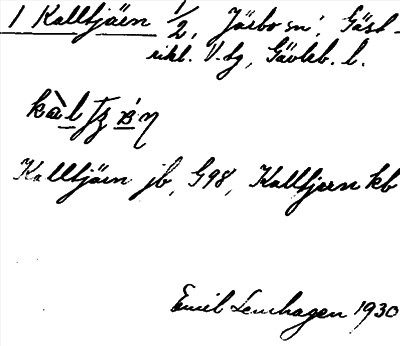 1 Kalltjärn 1/2, Järbo sn, Gäst-
rikl. V. dg, Gävleb. l.
Kalltjärn jb, G98, Kalltjern kb
Emil Lenhagen 1930